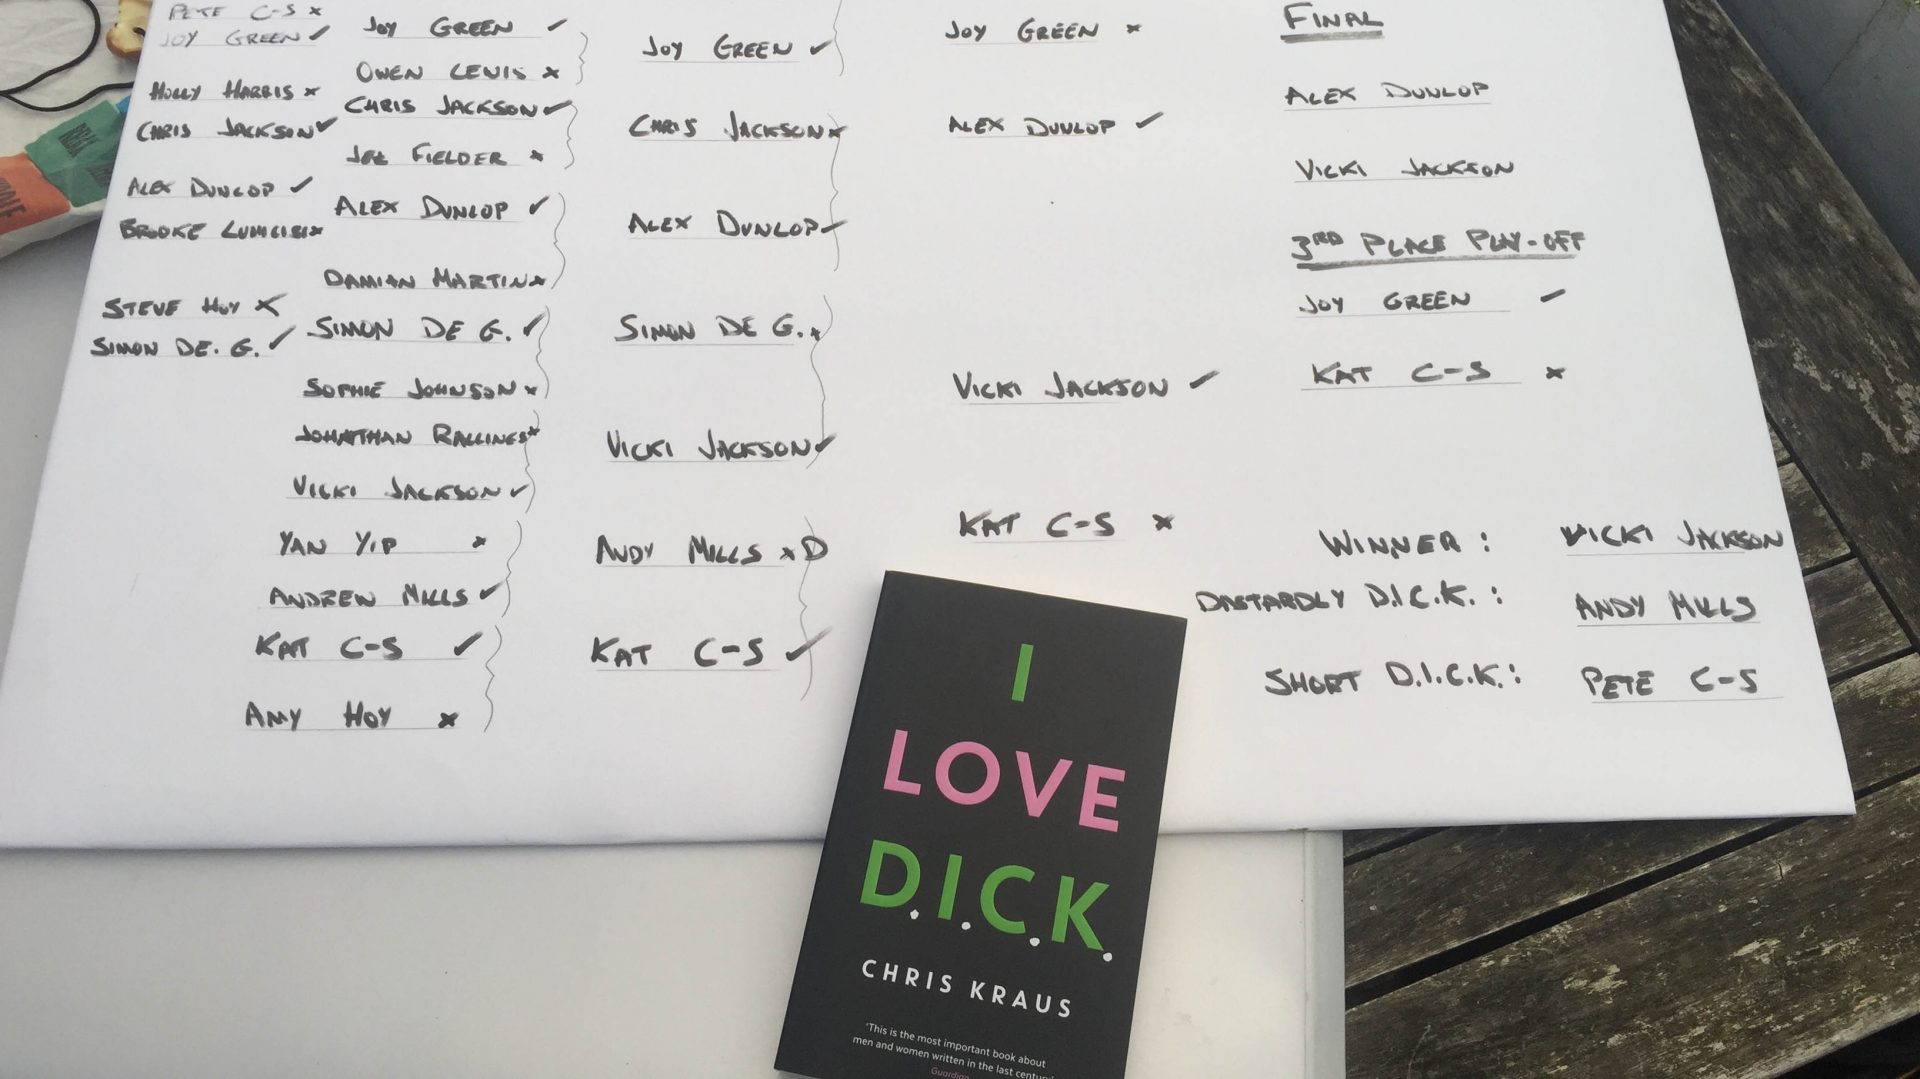 PETE C-S x
JOY GREEN ✓
HOLLY HARRIS x
CHRIS JACKSON ✓
ALEX DUNLOP ✓
BROOKE x
STEVE HOY x
SIMON DE. G. ✓
JOY GREEN ✓
OWEN LEWIS x
CHRIS JACKSON ✓
FIELDER x
ALEX DUNLOP ✓
DAMIAN MARTIN x
SIMON DE G. ✓
SOPHIE JOHNSON x
JOHNATHAN RALLINGS x
VICKI JACKSON ✓
YAN YIP x
ANDREW MILLS ✓
KAT C-S ✓
AMY HOY x
JOY GREEN ✓
CHRIS JACKSON x
ALEX DUNLOP ✓
SIMON DE G. x
VICKI JACKSON ✓
ANDY MILLS x D
KAT C-S ✓
JOY GREEN x
ALEX DUNLOP ✓
VICKI JACKSON ✓
KAT C-S x
FINAL
ALEX DUNLOP
VICKI JACKSON
3RD PLACE PLAY-OFF
JOY GREEN ✓
KAT C-S x
WINNER : VICKI JACKSON
DASTARDLY D.I.C.K. : ANDY MILLS
SHORT D.I.C.K. : PETE C-S
I
LOVE
D.I.C.K.
CHRIS KRAUS
'This is the most important book about
men and women written in the last century'
Guardian
RELAX